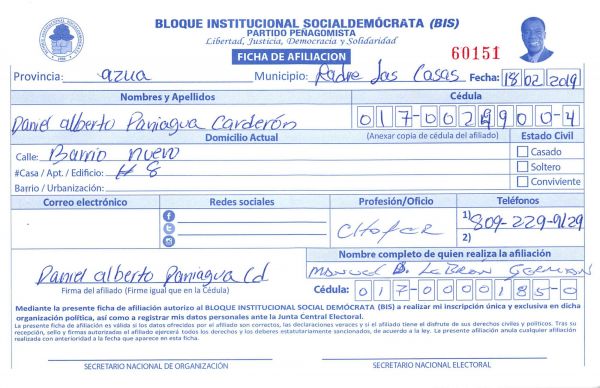 BLOQUE INSTITUCIONAL SOCIALDEMÓCRATA (BIS)
PARTIDO PEÑAGOMISTA
Libertad, Justicia, Democracia y Solidaridad
FICHA DE AFILIACION
60151
Provincia: azua Municipio: Padre Las Casas Fecha: 18 02 2019
Nombres y Apellidos Cédula
Daniel alberto Paniagua Carderón 017-0029900-4
Domicilio Actual (Anexar copia de cédula del afiliado) Estado Civil
Calle: Barrio nuevo Casado
#Casa / Apt. / Edificio: # 8 Soltero
Barrio / Urbanización: Conviviente
Correo electrónico Redes sociales Profesión/Oficio Teléfonos
Chofer 1) 809-229-9129
2)
Nombre completo de quien realiza la afiliación
Daniel alberto Paniagua Cd Manuel B. Lebron German
Firma del afiliado (Firme igual que en la Cédula) Cédula: 017-0000185-0
Mediante la presente ficha de afiliación autorizo al BLOQUE INSTITUCIONAL SOCIAL DEMÓCRATA (BIS) a realizar mi inscripción única y exclusiva en dicha
organización política, así como a registrar mis datos personales ante la Junta Central Electoral.
La presente ficha de afiliación es válida si los datos ofrecidos por el afiliado son correctos, las declaraciones veraces y si el afiliado tiene el disfrute de sus derechos civiles y políticos. Tras su
recepción, sello y firmas autorizadas el afiliado ejercerá todos los derechos y los deberes estatutariamente sancionados, de acuerdo a la ley. La presente afiliación anula cualquier afiliación
realizada con anterioridad a la fecha que aparece en esta ficha.
SECRETARIO NACIONAL DE ORGANIZACIÓN SECRETARIO NACIONAL ELECTORAL